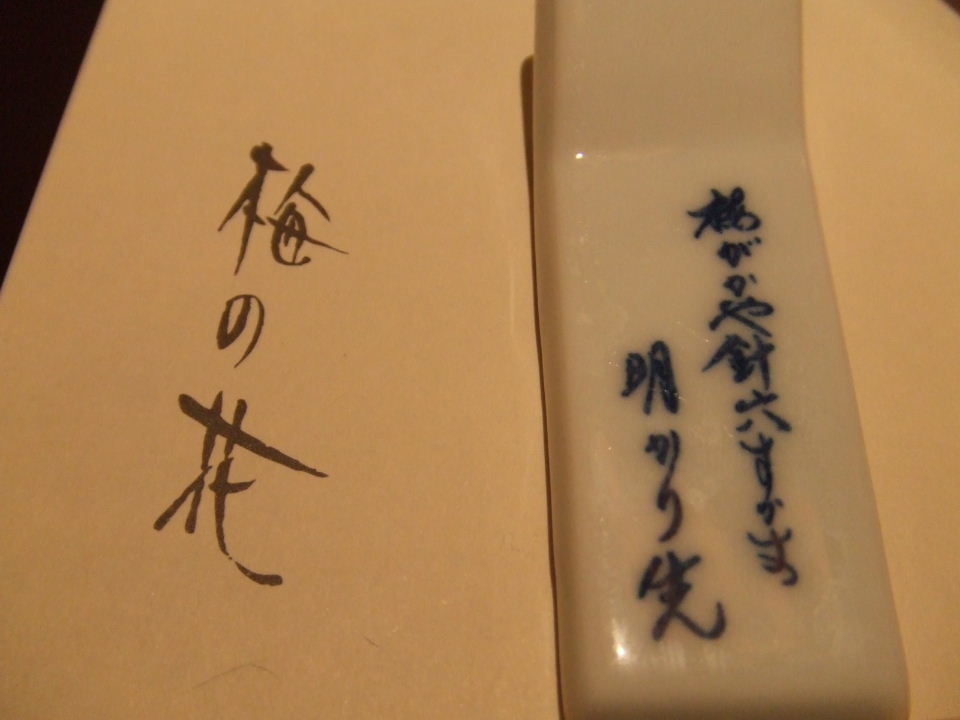 梅の花
梅がかや針穴すかす
明かり先